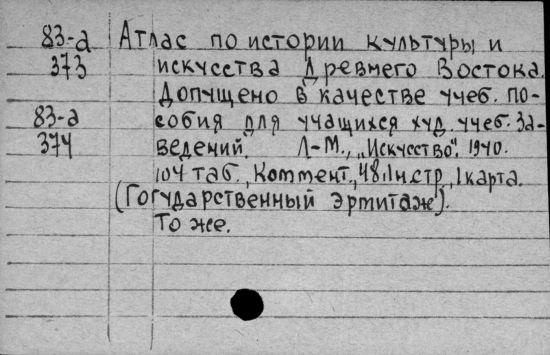 83-а Атлас по истории культуры и
373 искусства Древнего Востока.
Допущено в качестве учеб. по-
83-а собия для учащихся худ. учеб. за-
374 ведений. Л-М., „Искусство". 1940.
104 таб., Коммент., 48.1н.стр, 1 карта.
(Государственный Эрмитаж).
То же.